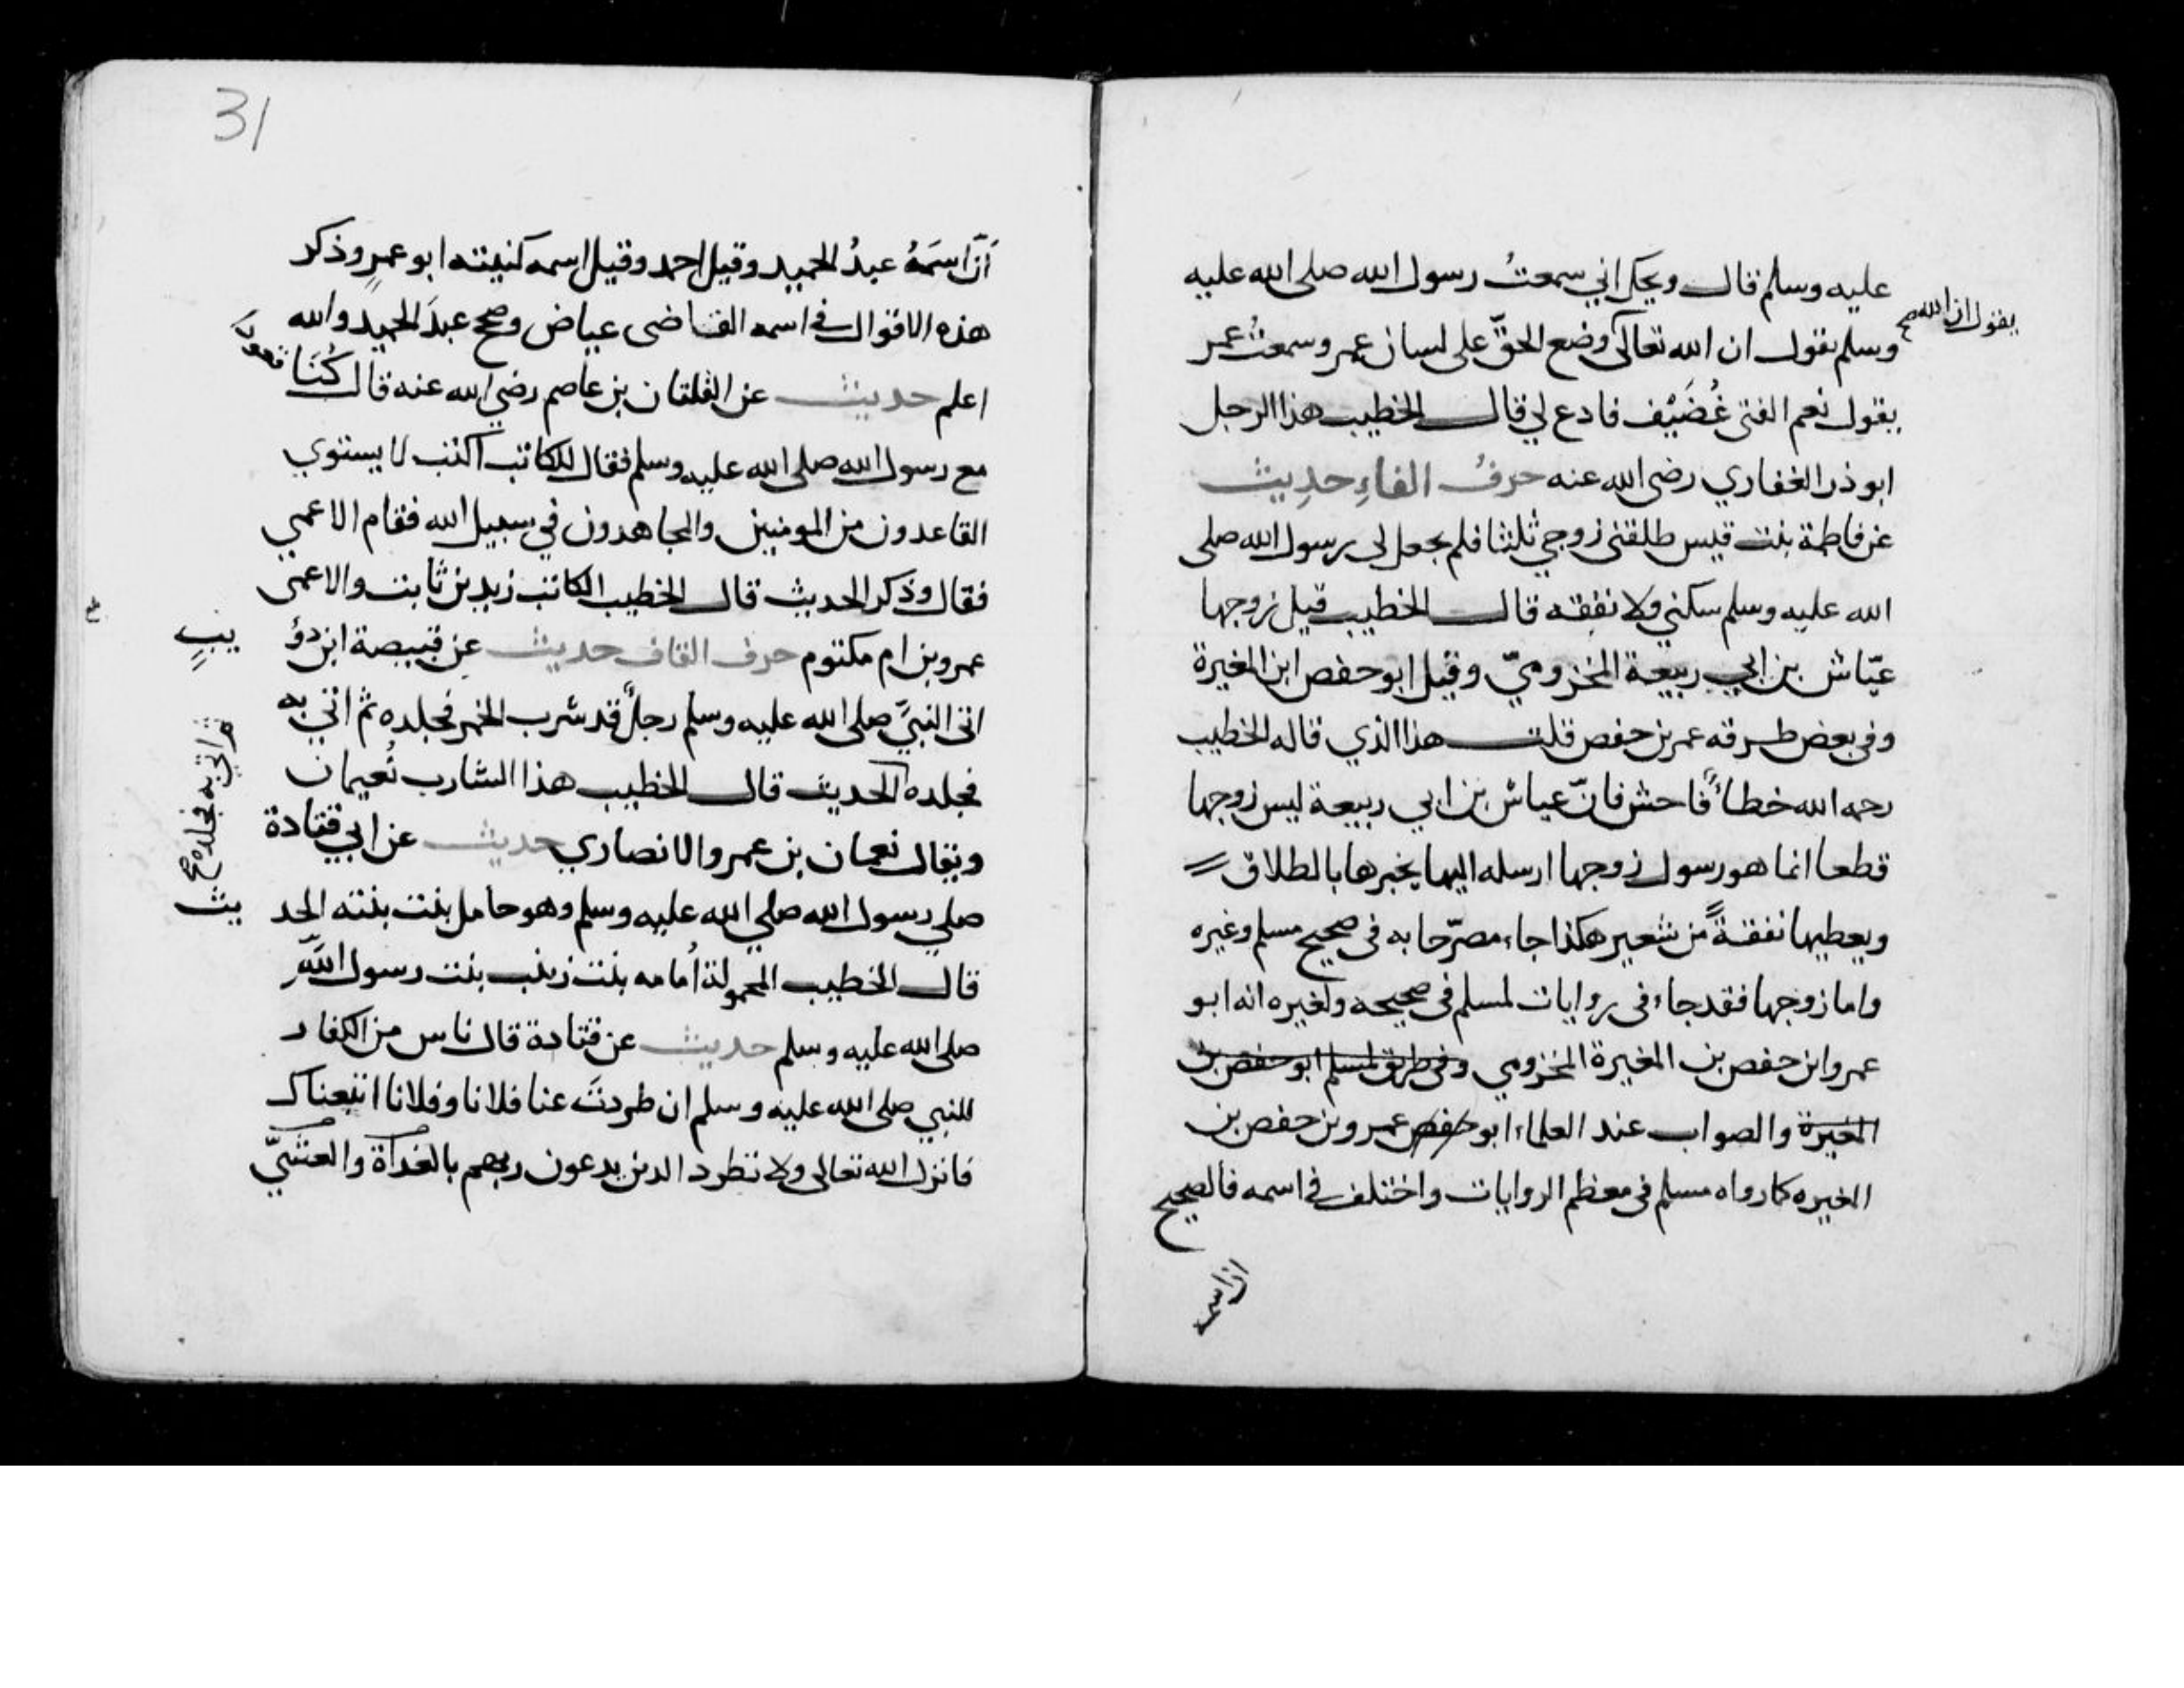 عليه وسلم قال ويحك اني سمعتُ رسول الله صلى الله عليه
يقول ان الله صح
وسلم يقول ان الله تعالى وضع الحقّ على لسان عمر وسمعتُ عمر
يقول نعم الفتى غُضَيْف فادع لي قال الخطيب هذا الرجل
ابو ذر الغفاري رضى الله عنه حرفُ الفاءِ حدِيث
عن فاطمة بنت قيس طلقنى زوجي ثلثا فلم يجعل لى رسول الله صلى
الله عليه وسلم سكنى ولا نفقة قال الخطيب قيل زوجها
عيّاش بن ابي ربيعة المخزوميّ وقيل ابو حفص ابن المغيرة
وفى بعض طرقه عمر بن حفص قلت هذا الذي قاله الخطيب
رحمه الله خطاءٌ فاحش فانّ عياش بن ابي ربيعة ليس زوجها
قطعا انما هو رسول زوجها ارسله اليها يخبرها بالطلاق
ويعطيها نفقةً من شعير هكذا جاء مصرّحا به فى صحيح مسلم وغيره
واما زوجها فقد جاء فى روايات لمسلم فى صحيحه ولغيره انه ابو
عمرو ابن حفص بن المغيرة المخزومي وفى طريق لمسلم ابو حفص بن
المغيرة والصواب عند العلماء ابو حفص عمرو بن حفص بن
المغيره كما رواه مسلم فى معظم الروايات واختلف في اسمه فالصحيح
ان اسمه
31
أنّ اسمَهُ عبدُ الحميد وقيل احمد وقيل اسمه كنيته ابو عمرٍو ذكر
هذه الاقوال في اسمه القاضى عياض وصحح عبدَ الحميد والله
اعلم حديث عن الفلتان بن عاصم رضي الله عنه قال كُنَّا قعودًا
مع رسول الله صلى الله عليه وسلم فقال للكاتب اكتب لا يستوي
القاعدون من المومنين والمجاهدون في سبيل الله فقام الاعمي
فقال وذكر الحديث قال الخطيب الكاتب زيد بن ثابت والاعمى
عمرو بن ام مكتوم حرف القاف حديث عن قبيصة ابن ذؤ يبٍ
اتى النبيَّ صلى الله عليه وسلم رجلٌ قد شرب الخمر فجلده ثم اتي به
فجلده الحديث قال الخطيب هذا الشارب نُعيمان
ثم اتي به فجلده صح
ويقال نعمان بن عمرو الانصاري حديث عن ابي قتادة
صلي رسول الله صلي الله عليه وسلم وهو حامل بنت بنته الحد يث
قال الخطيب المحمولة أمامه بنت زينب بنت رسول اللّه
صلى الله عليه وسلم حديث عن قتادة قال ناس من الكفار
للنبي صلى الله عليه وسلم ان طردتَ عنا فلانا وفلانا اتبعناك
فانزل الله تعالى ولا تطرد الذين يدعون ربهم بالغداة والعشيّ